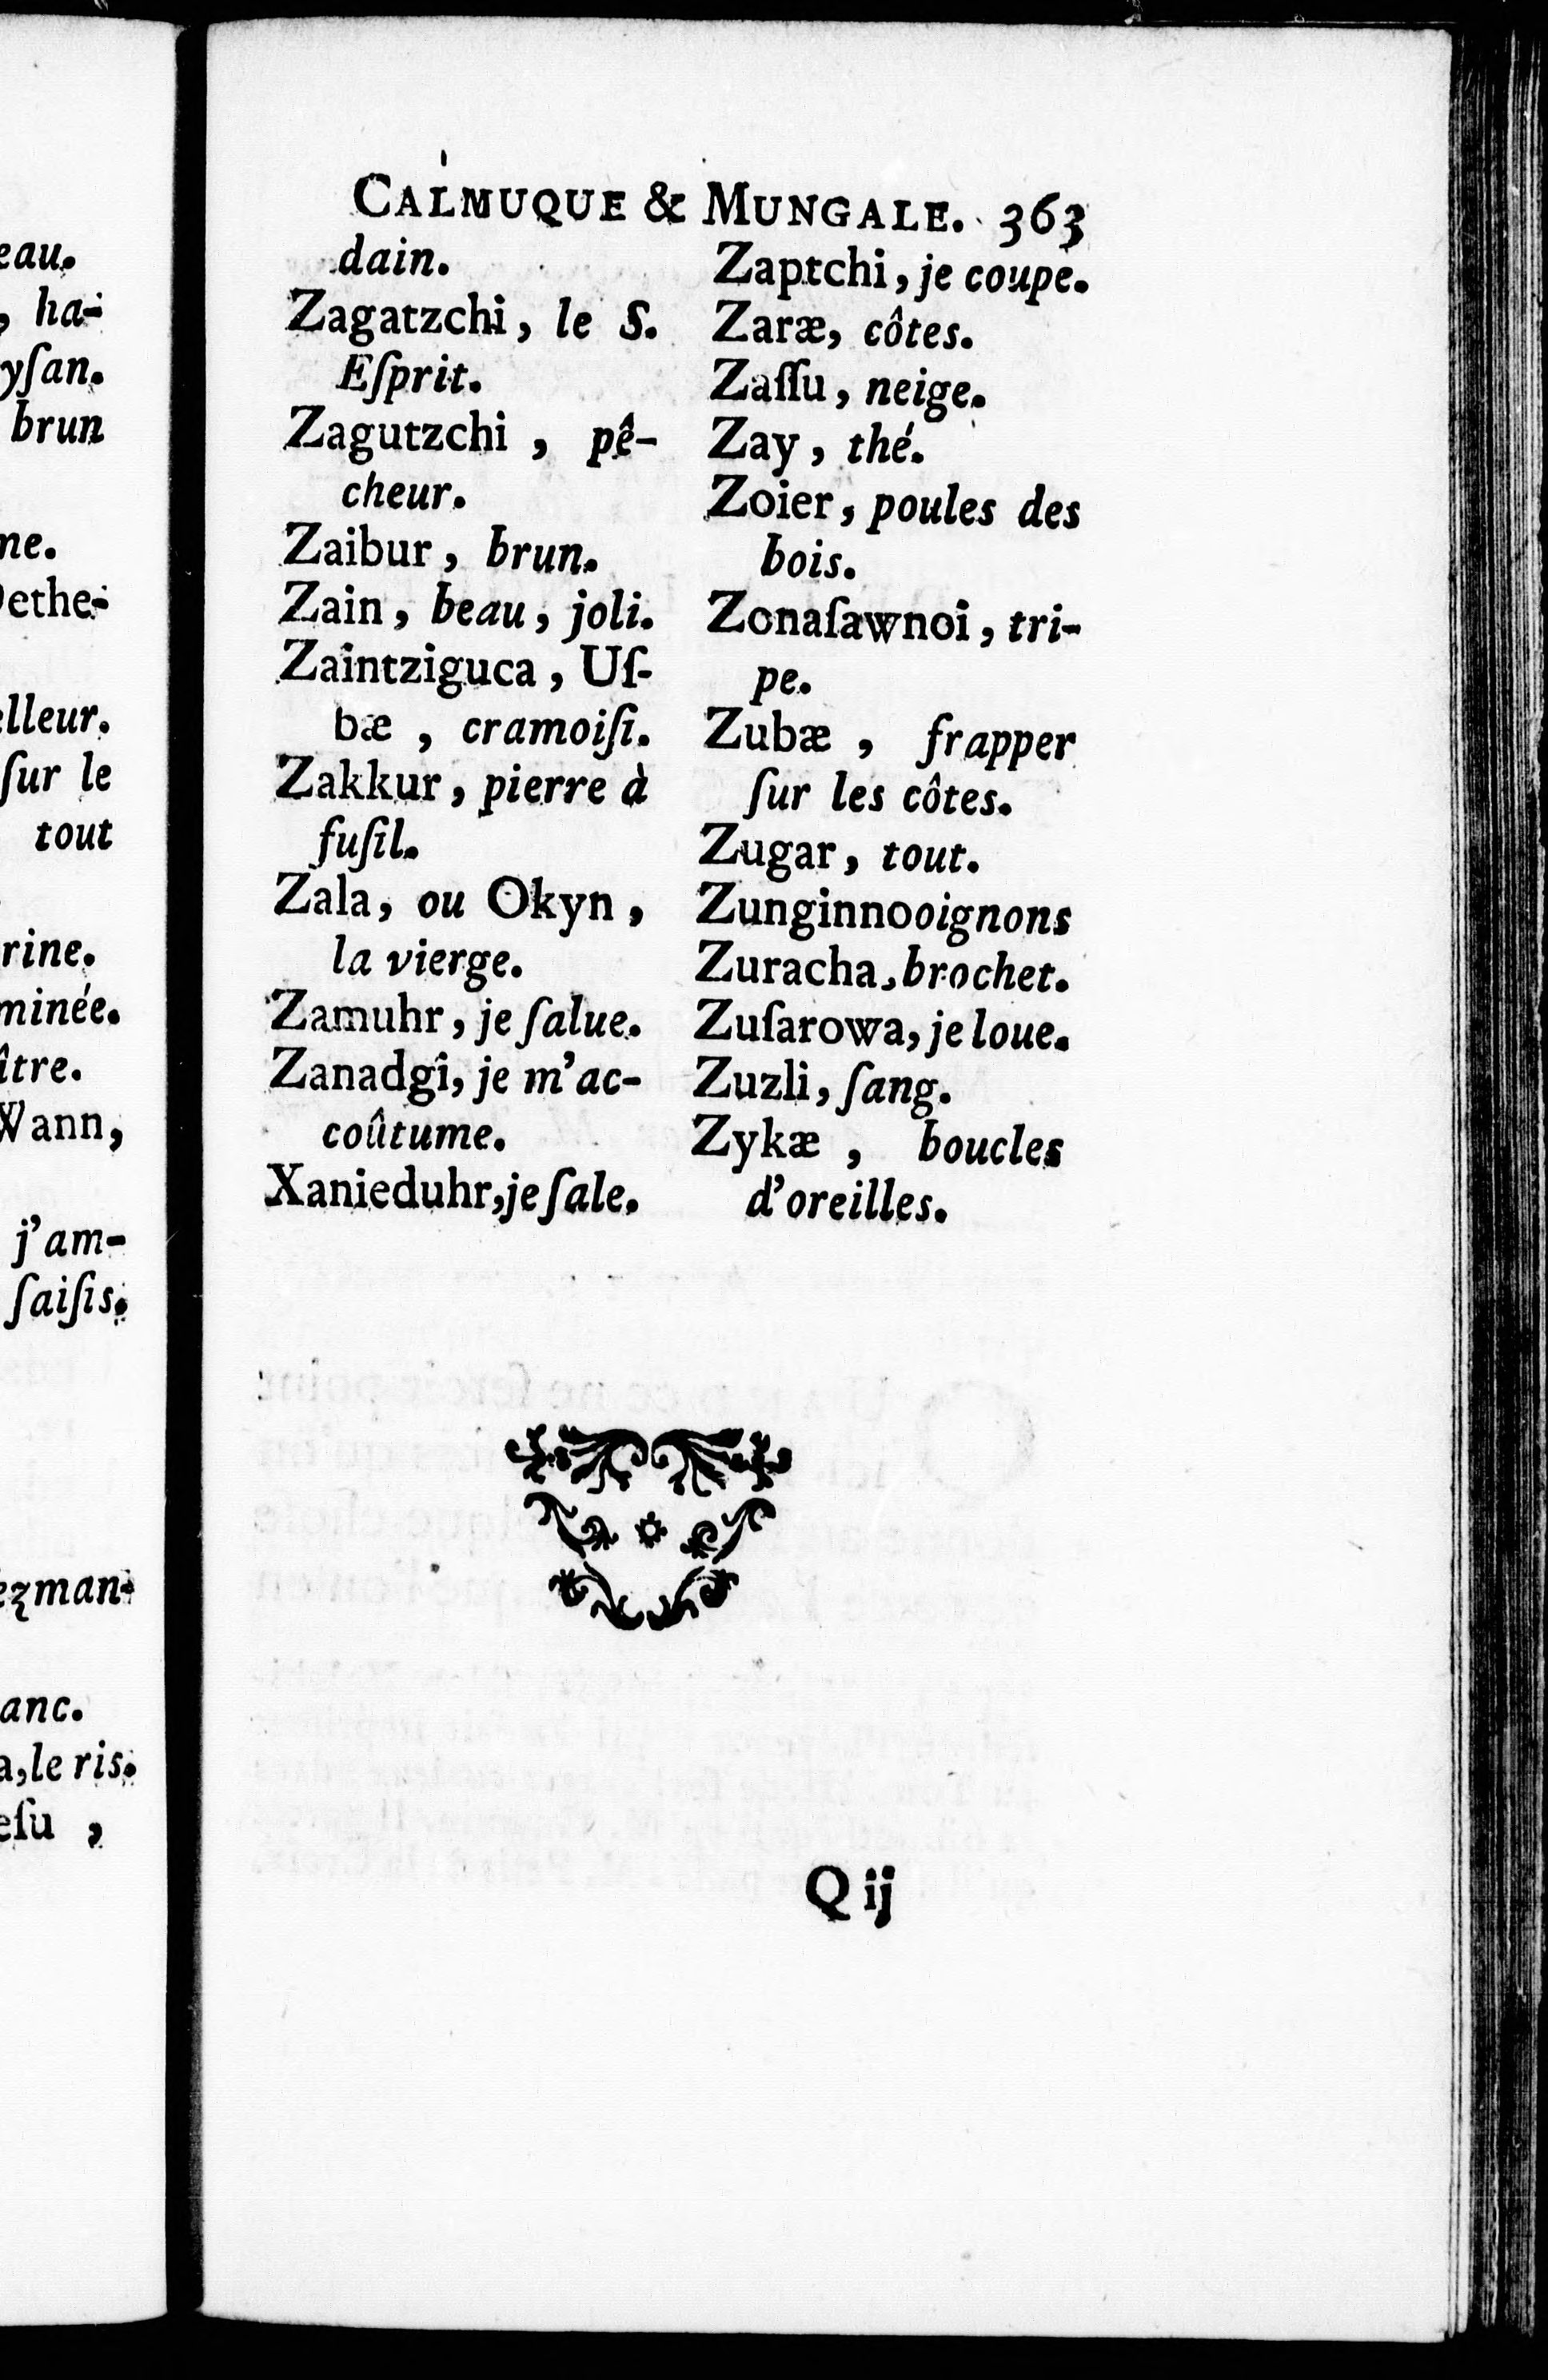 eau.
, ha-
yſan.
brun
ne.
Dethe-
elleur.
ſur le
tout
rine.
minée.
ître.
Wann,
j'am-
ſaiſis.
ezman-
anc.
a, le ris.
eſu ,
CALMUQUE & MUNGALE. 363
dain.
Zagatzchi, le S.
Eſprit.
Zagutzchi , pê-
cheur.
Zaibur, brun.
Zain, beau, joli.
Zaintziguca, Uſ-
bæ , cramoiſi.
Zakkur, pierre à
fuſil.
Zala, ou Okyn,
la vierge.
Zamuhr, je ſalue.
Zanadgi, je m'ac-
coûtume.
Xanieduhr, je ſale.
Zaptchi, je coupe.
Zaræ, côtes.
Zaſſu, neige.
Zay, thé.
Zoier, poules des
bois.
Zonaſawnoi, tri-
pe.
Zubæ , frapper
ſur les côtes.
Zugar, tout.
Zunginnooignons
Zuracha, brochet.
Zuſarowa, je loue.
Zuzli, ſang.
Zykæ , boucles
d'oreilles.
Q ij